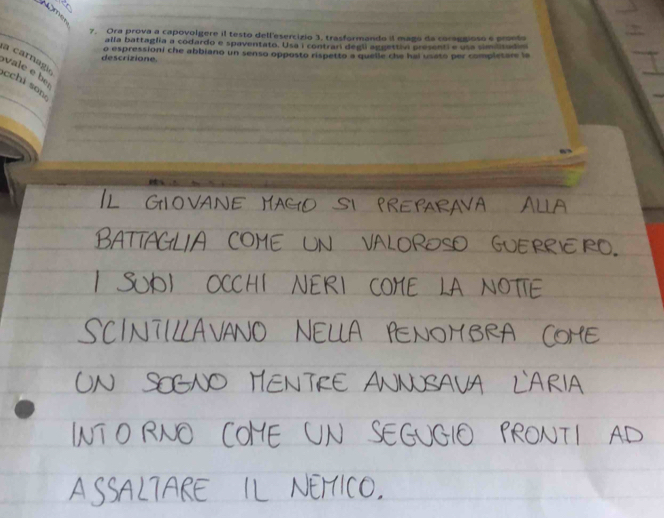 ua carnagio
ovale e ben
occhi sono
7. Ora prova a capovolgere il testo dell'esercizio 3, trasformando il mago da coraggioso e pronto
alla battaglia a codardo e spaventato. Usa i contrari degli aggettivi presenti e usa similitudini
o espressioni che abbiano un senso opposto rispetto a quelle che hai usato per completare la
descrizione.
IL GIOVANE MAGO SI PREPARAVA ALLA
BATTAGLIA COME UN VALOROSO GUERRIERO.
I SUOI OCCHI NERI COME LA NOTTE
SCINTILLAVANO NELLA PENOMBRA COME
UN SOGNO MENTRE ANNUSAVA L'ARIA
INTORNO COME UN SEGUGIO PRONTI AD
ASSALTARE IL NEMICO.